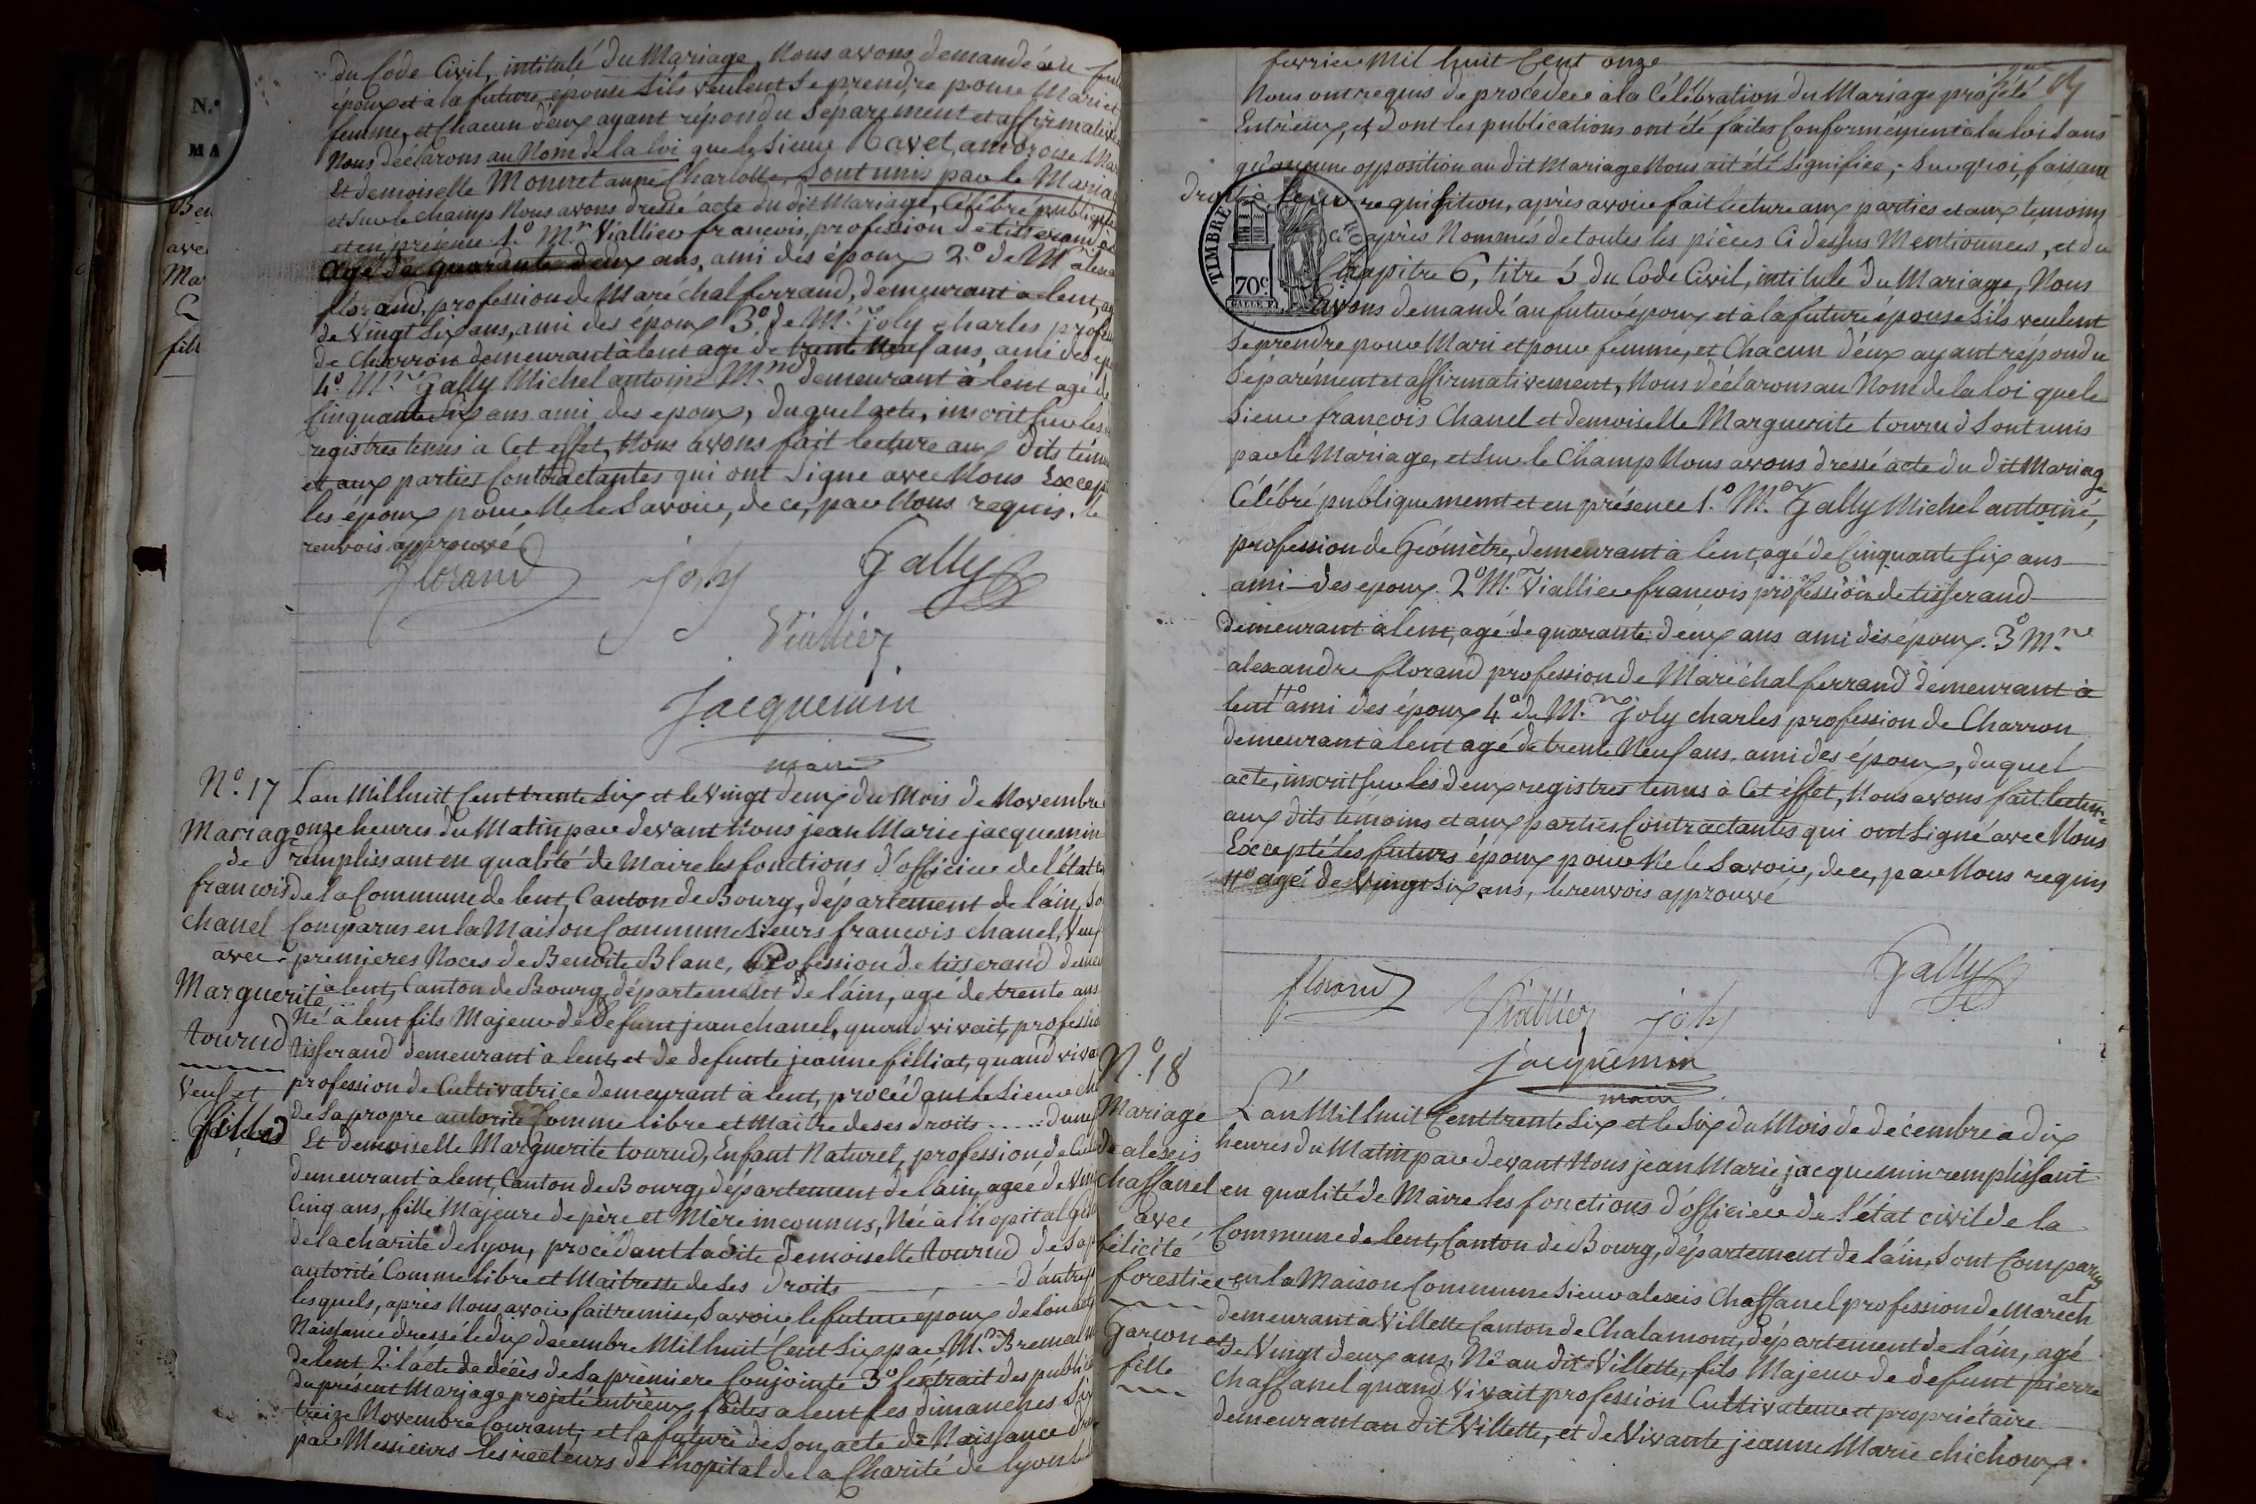 du Code Civil, intitulé du Mariage, Nous avons demandé au
époux et à la future épouse s'ils veulent se prendre pour Mari et
femme, et Chacun d'eux ayant répondu Séparement et affirmativ
Nous déclarons au Nom de la loi que le Sieur ambroise
Et demoiselle Monnet Charlotte Sont unis par le Maria
et sur le champs Nous avons dressé acte du dit Mariage, Célébré publique
et en présence 1.º M.r Viallier francois, profession de tisserand
agé de quarante deux ans, ami des époux 2.º de M
florand, profession de Maréchal ferrand, demeurant a lent, ag
de Vingt Six ans, ami des époux 3.º de M.r joly charles profes
de Charron demeurant à lent agé de trente Neuf ans, ami des ep
4.º M.r Gally Michel antoine demeurant à lent agé de
Cinquante Six ans ami des epoux, duquel acte, inscrit sur les
registres tenus à Cet effet, Nous avons fait lecture aux dits témo
et aux parties Contractantes qui ont Signe avec Nous Except
les époux pour Ne le Savoir, de ce, par Nous requis. le
renvois approuvé
florand joly Gally
Viallier
Jacquemin
maire
Nº. 17
Mariage
de
francois
chanel
avec
Marguerite
tourud
Veuf et
fille
L'an Mil huit Cent trente Six et le Vingt deux du Mois de Novembre
onze heures du Matin par devant Nous jean Marie jacquemin
remplissant en qualité de Maire les fonctions d'officier de l'état
de la Commune de lent, Canton de Bourg, département de l'ain, So
Comparus en la Maison Commune Sieurs francois chanel, Veuf
premieres Noces de Benoite Blanc, Profession de tisserand deme
à lent, Canton de Bourg, département de l'ain, agé de trente ans
Né à lent fils Majeur de Defunt jean chanel, quand vivait, professi
tisserand demeurant à lent, et de defunte jeanne filliat, quand viva
profession de Cultivatrice demeurant à lent, procédant le Sieur ch
de Sa propre autorité Comme libre et Maitre de ses droits ..... d'une
Et demoiselle Marguerite tourud, Enfant Naturel, profession, de Cul
demeurant à lent, Canton de Bourg, département de l'ain, agée de Vin
Cinq ans, fille Majeure de père et Mère inconnus, Née à l'hopital
de la charité de lyon, procédant la dite demoiselle tourud de Sa p
autorité Comme libre et Maitresse de Ses droits d'autre
lesquels, après Nous avoir fait remise, Savoir le futur époux de Son
Naissance dressé le dix decembre Mil huit Cent Six par M.r
de lent 2.º l'acte de décès de Sa première Conjointe 3.º l'extrait des public
du présent Mariage projeté entr'eux, faites a lent les dimanches Six
treize Novembre Courant, et la future de Son acte de Naissance
par Messieurs les recteurs de l'hopital de la Charité de lyon
fevrier Mil huit Cent onze
Nous ont requis de procéder à la Célébration du Mariage projété
Entr'eux, et dont les publications ont été faites Conformément à la loi Sans
qu'aucune opposition au dit Mariage Nous ait été Signifiée; Sur quoi, faisant
droit à leur requisition, après avoir fait lecture aux parties et aux temoins
Ci après Nommés de toutes les pièces Ci dessus Mentionnées, et du
Chapitre 6, titre 5 du Code Civil, intitulé du Mariage, Nous
TIMBRE ROYAL
70c
avons demandé au futur époux et à la future épouse S'ils veulent
Se prendre pour Mari et pour femme, et Chacun d'eux ayant répondu
Séparément et affirmativement, Nous déclarons au Nom de la loi que le
Sieur francois Chanel et demoiselle Marguerite tourud Sont unis
par le Mariage, et Sur le Champ Nous avons dressé acte du dit Mariage
Célébré publiquement et en présence 1.º M.r Gally Michel antoine,
profession de Géomètre, demeurant à lent, agé de Cinquante Six ans
ami des epoux. 2º M.r Viallier francois profession de tisserand
demeurant à lent, agé de quarante deux ans ami des époux. 3º M.r
alexandre florand profession de Maréchal ferrand demeurant à
lent ami des époux 4.º de M.r Joly charles profession de Charron
demeurant à lent agé de trente Neuf ans, ami des époux, duquel
acte, inscrit Sur les deux registres tenus à Cet effet, Nous avons fait lecture
aux dits témoins et aux parties Contractantes qui ont Signé avec Nous
Excepté les futurs époux pour Ne le Savoir, de ce, par Nous requis
agé de Vingt Six ans, le renvois approuvé
florand Viallier joly Gally
jacquemin
maire
Nº. 18
Mariage
de alexis
chassanel
avec
félicité
forestier
Garcon et
fille
L'an Mil huit Cent trente Six et le Six du Mois de décembre à dix
heures du Matin par devant Nous jean Marie jacquemin remplissant
en qualité de Maire les fonctions d'officier de l'état civil de la
Commune de lent, Canton de Bourg, département de l'ain, Sont Comparus
en la Maison Commune Sieur alexis Chassanel profession de Marech al
demeurant à Villette Canton de Chalamont, département de l'ain, agé
de Vingt deux ans, Né au dit Villette, fils Majeur de defunt pierre
Chassanel quand Vivait profession Cultivateur et propriétaire
demeurant au dit Villette, et de Vivante jeanne Marie chichoux